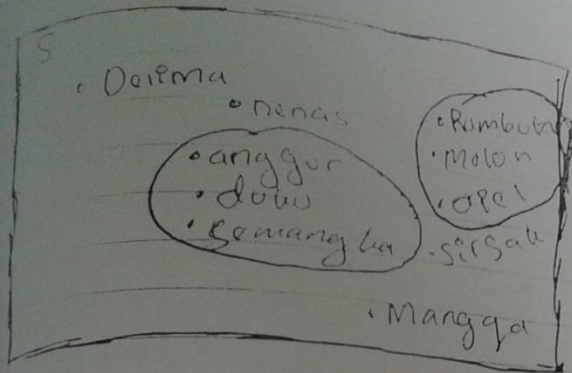 S
Delima
nenas
anggur
duku
semangka
Rambutan
Melon
apel
sirsak
Mangga